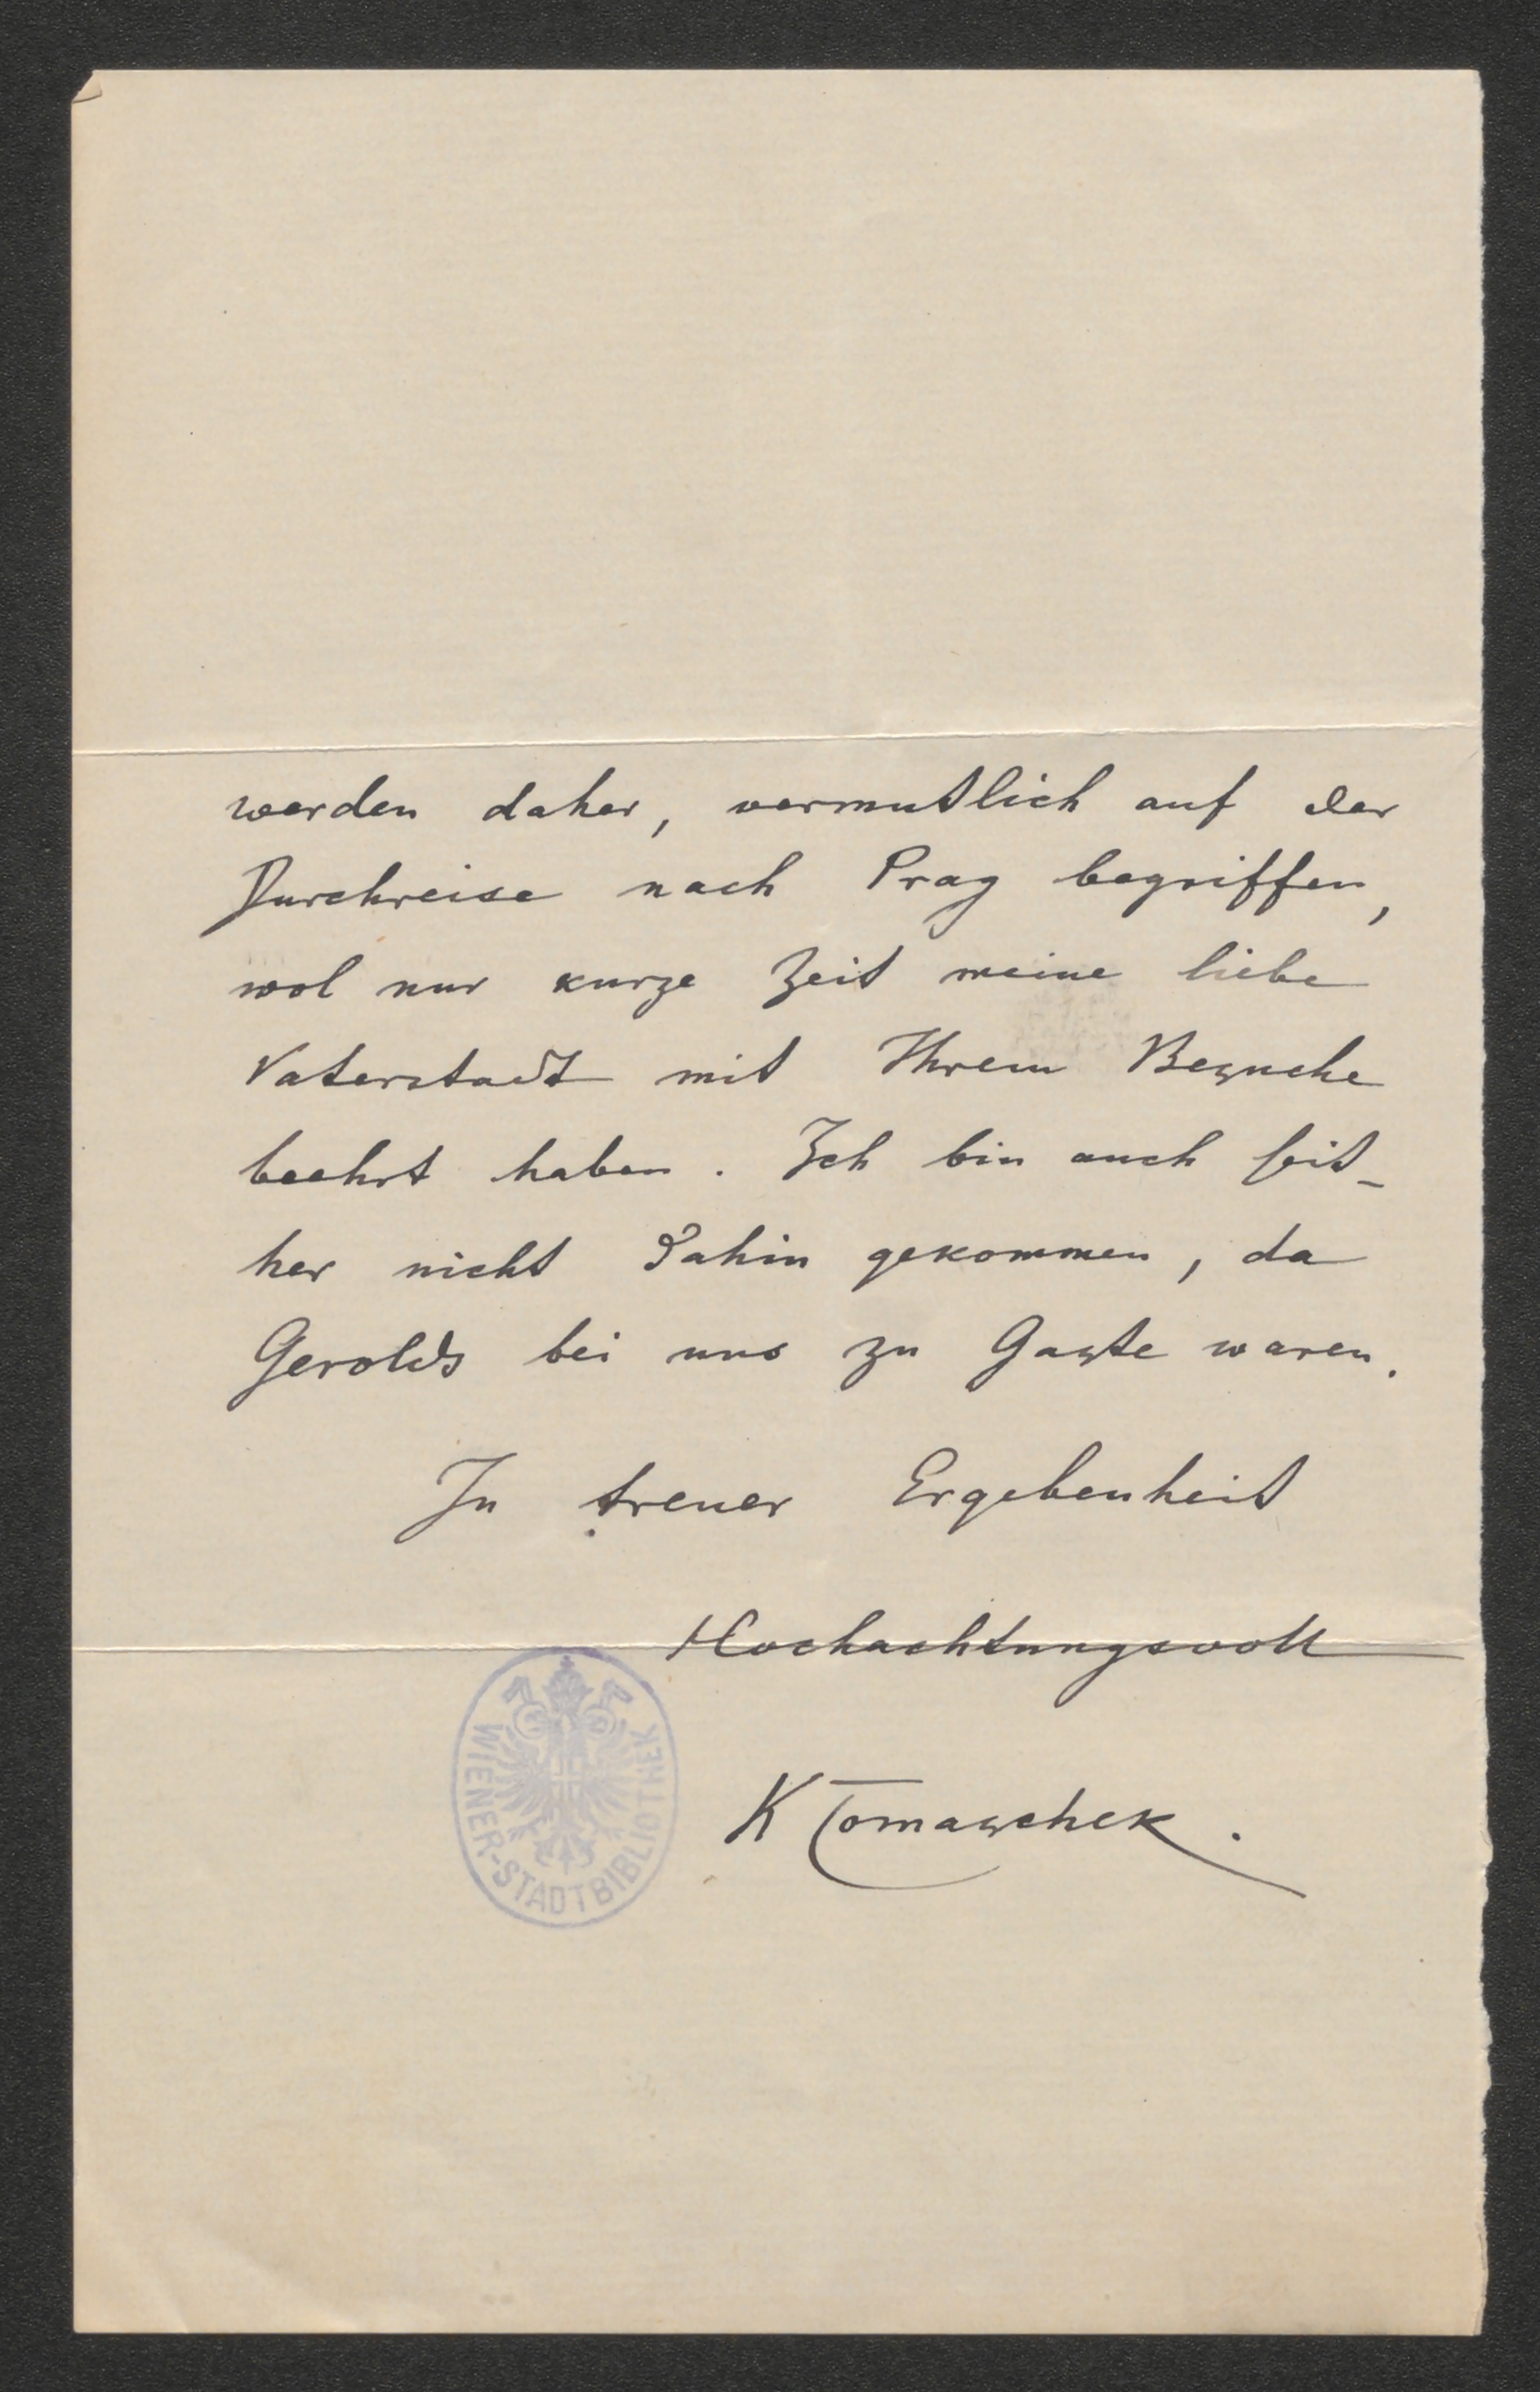 werden daher, vermutlich auf der
Durchreise nach Prag begriffen,
wol nur kurze Zeit meine liebe
Vaterstadt mit Ihrem Besuche
beehrt haben. Ich bin auch seit-
her nicht dahin gekommen, da
Gerolds bei uns zu Gaste waren.
In treuer Ergebenheit
Hochachtungsvoll
WIENER-STADTBIBLIOTHEK
K Tomaschek.